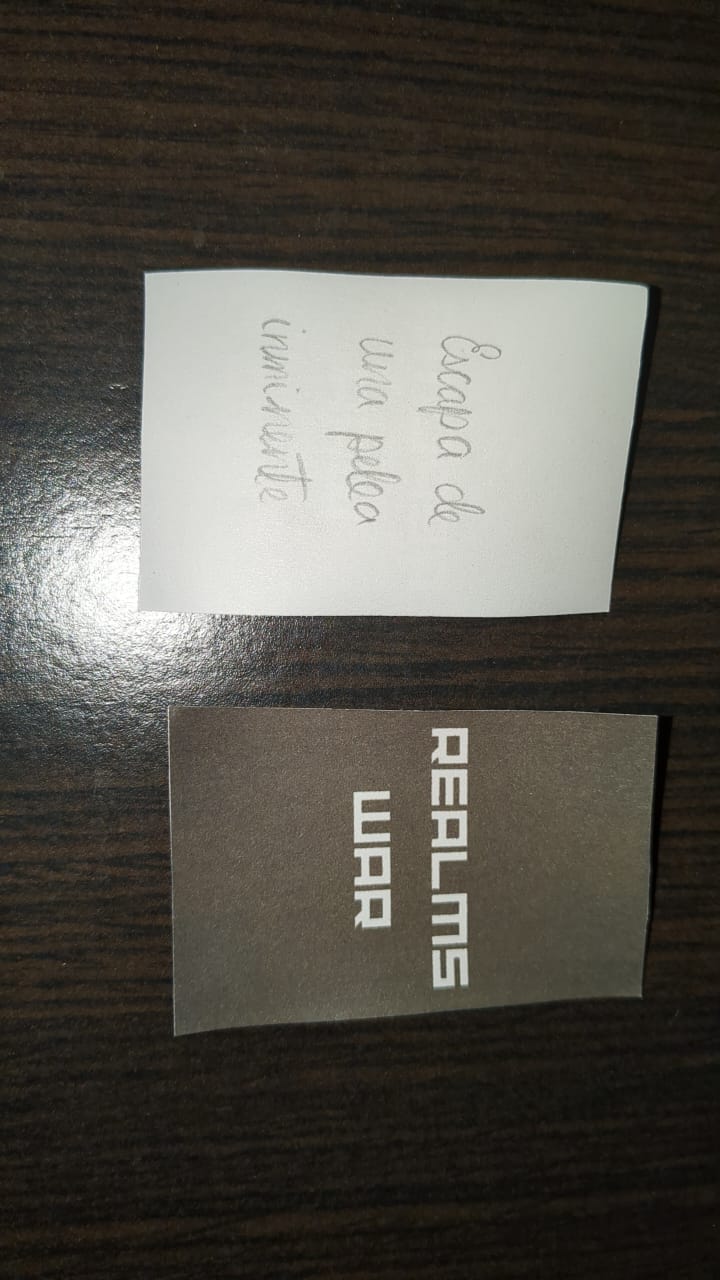 Escapa de
una pelea
inminente
REALMS
WAR